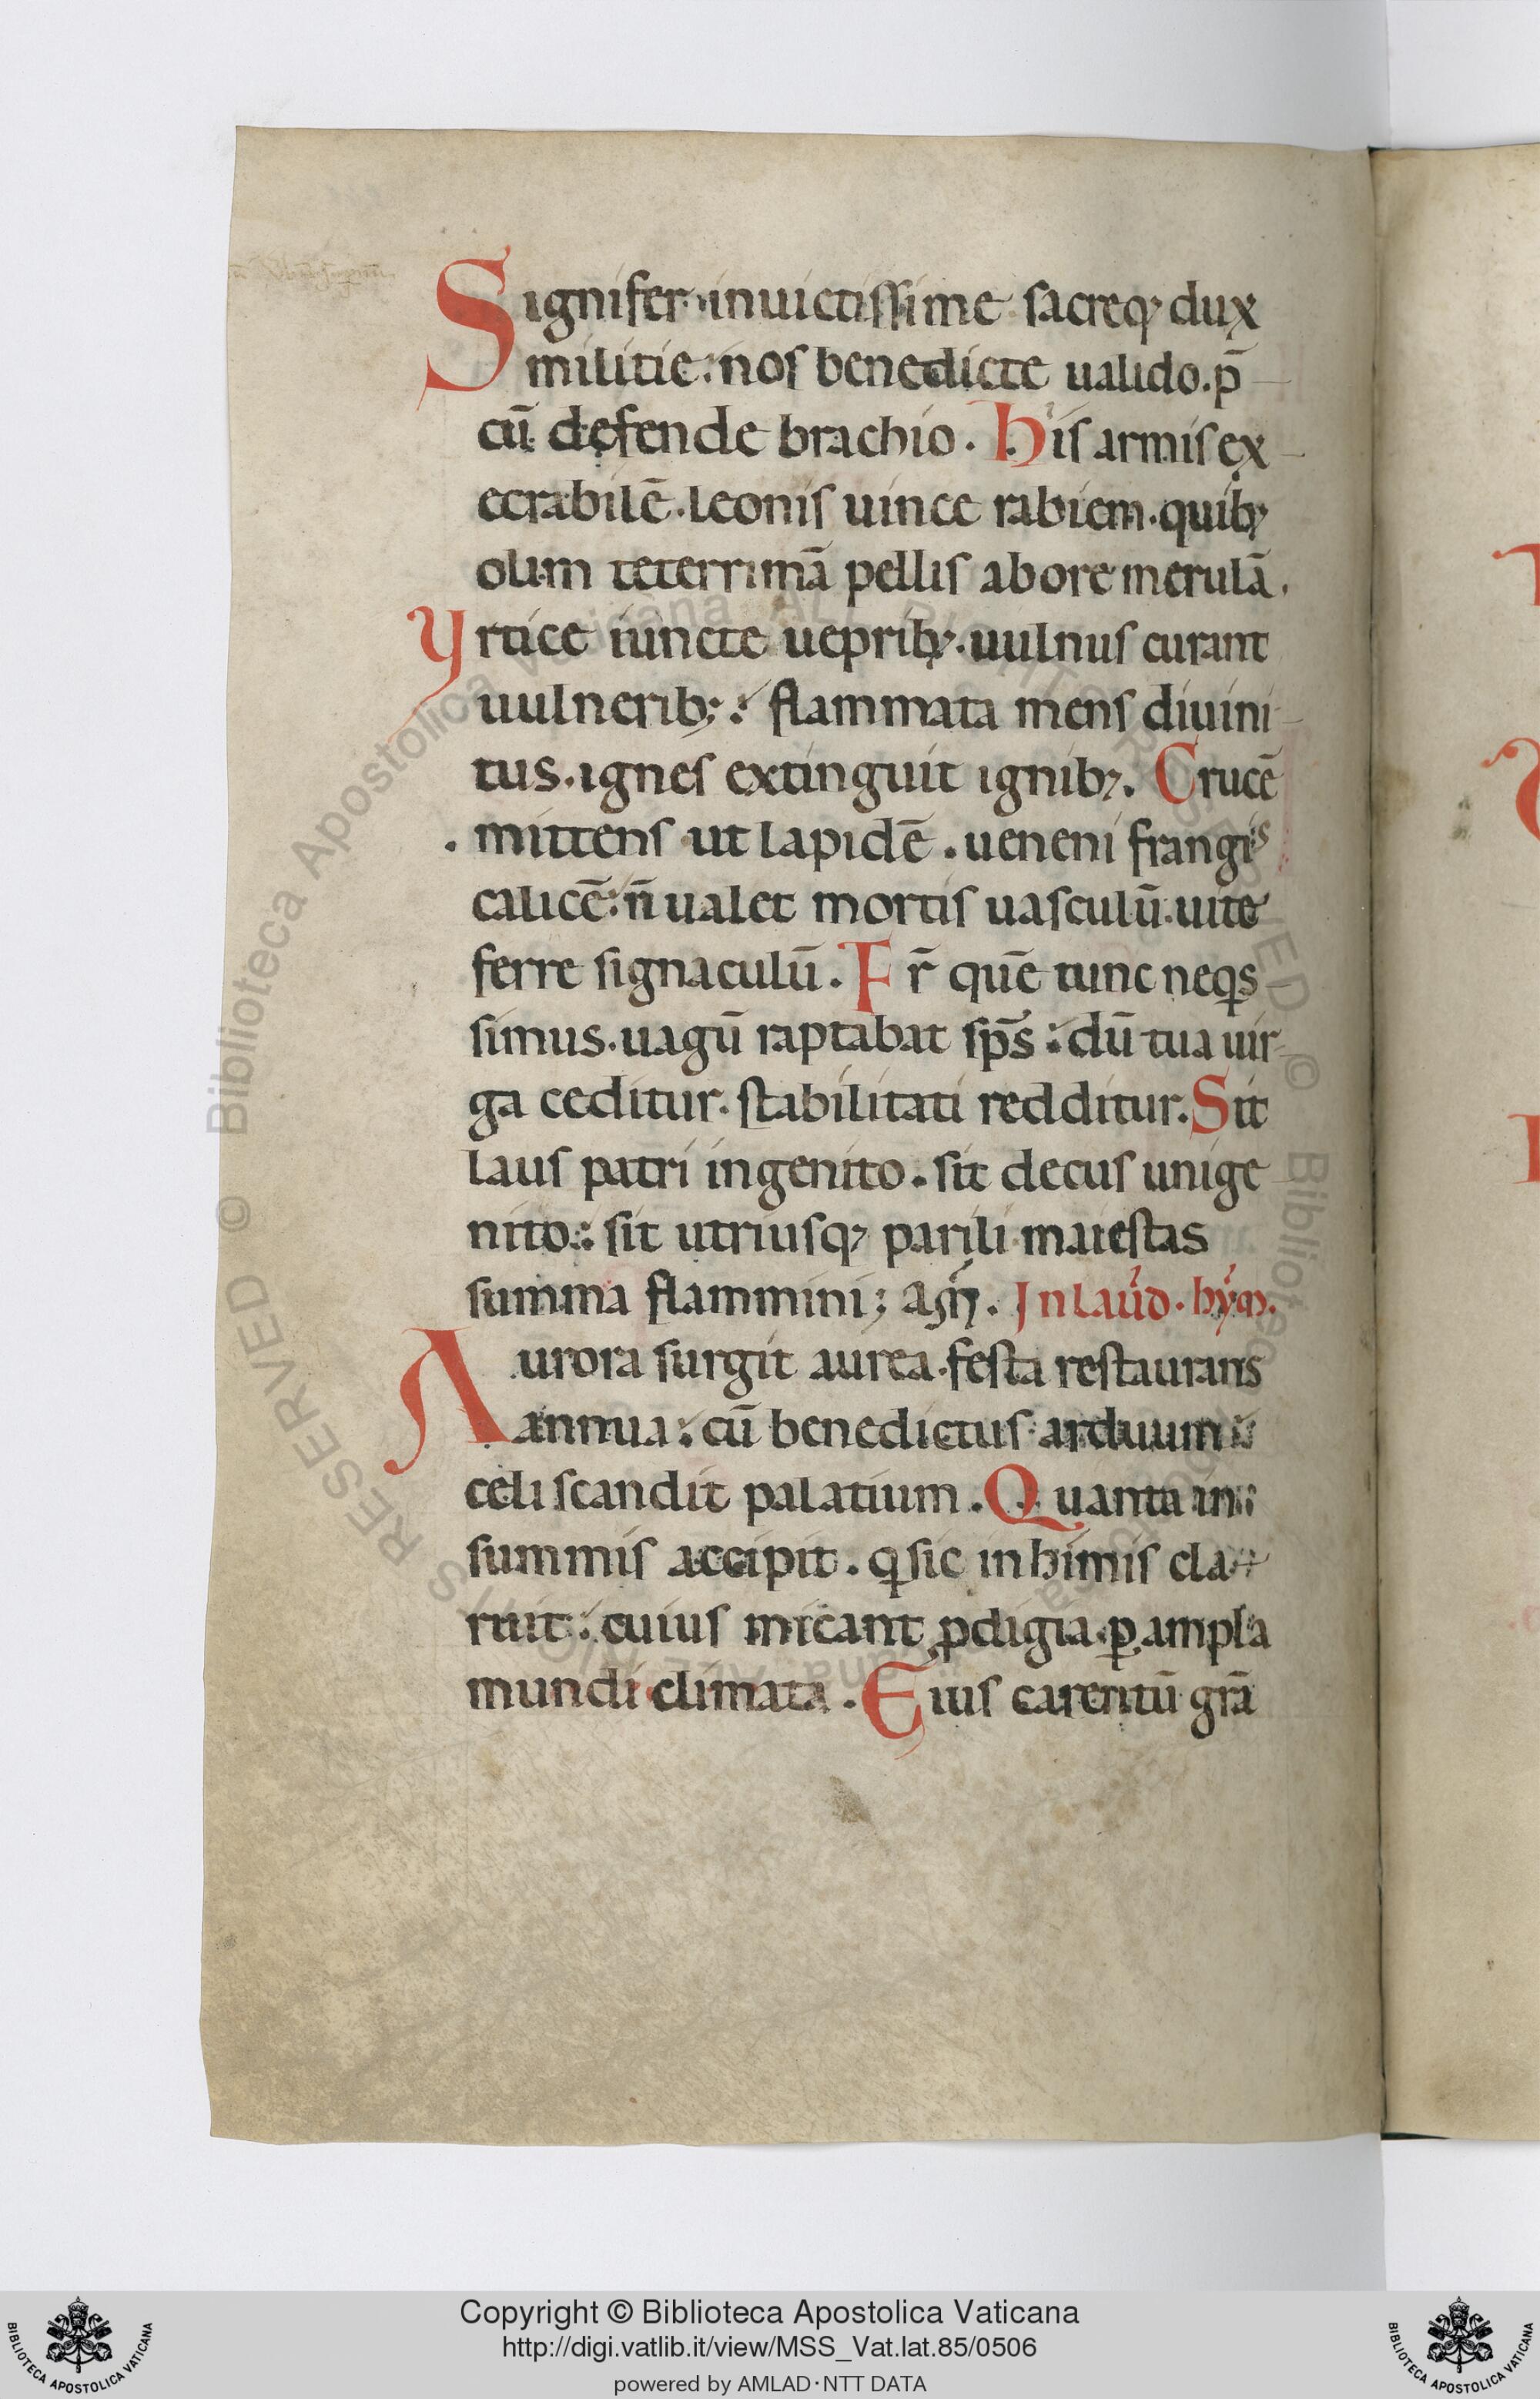 Signifer inuictissime sacreq; dux
militie: nos benedicte ualido. p̄
cū defende brachio. His armis ex
ecrabilē. leonis uince rabiem. quib;
olim teterrimā pellis abore merulā.
Yrtice iuncte ueprib;. uulnus curant
uulnerib;: flammata mens diuini
tus. ignes extinguit ignib;. Crucē
mittens ut lapidē. ueneni frangis
calicē: n̄ ualet mortis uasculū. uite
ferre signaculū. Fr̄ quē tunc neq̇s
simus. uagū raptabat sp̄s: dū tua uir
ga ceditur. stabilitati redditur. Sit
laus patri ingenito. sit decus unige
nito: sit utriusq; parili maiestas
summa flammini; am̄. In laud. hym̄.
Aurora surgit aurea. festa restaurans
annua: cū benedictus arduum
celi scandit palatium. Quanta in
summis accipit. q sic in himis cla
ruit: cuius micant ꝓdigia. ꝑ ampla
mundi climata. Eius carentū grā
Copyright © Biblioteca Apostolica Vaticana
http://digi.vatlib.it/view/MSS_Vat.lat.85/0506
powered by AMLAD·NTT DATA